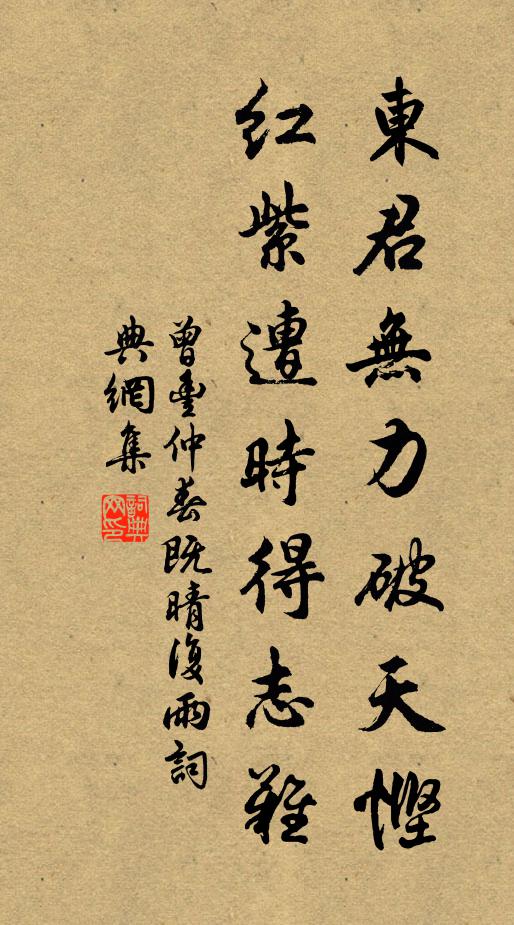 東君無力破天慳
紅紫遭時得志難
曾豐仲春既晴復雨詞
典網集
詞典網印